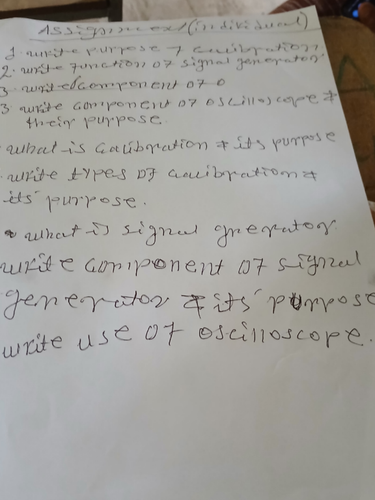 Assignment (individual)
1. write purpose of calibration.
2. write function of signal generator.
3. write component of o
3 write component of oscilloscope &
their purpose.
what is calibration & its purpose
write types of calibration &
its purpose.
• what is signal gnerator.
write component of signal
generator & its purpose
write use of oscilloscope.